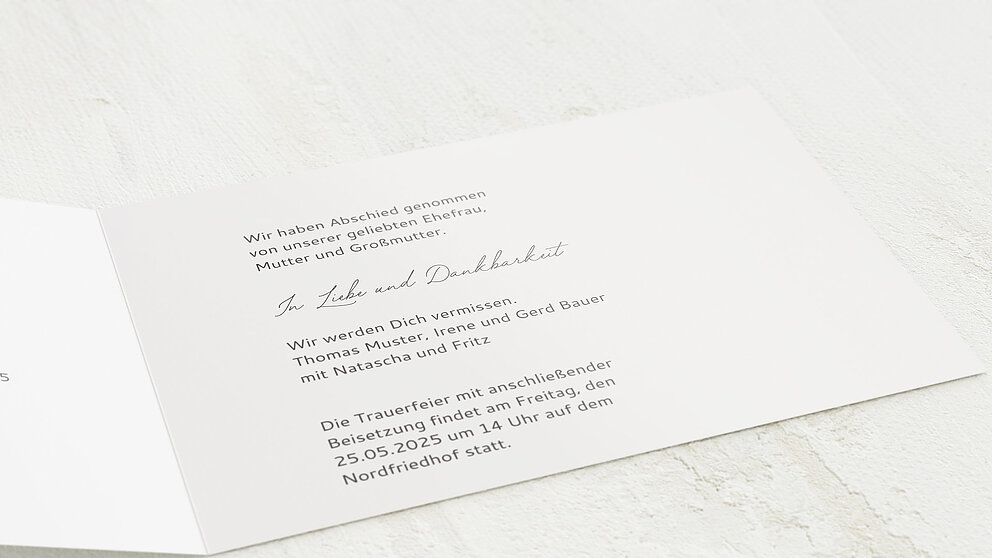 5
Wir haben Abschied genommen
von unserer geliebten Ehefrau,
Mutter und Großmutter.
In Liebe und Dankbarkeit
Wir werden Dich vermissen.
Thomas Muster, Irene und Gerd Bauer
mit Natascha und Fritz
Die Trauerfeier mit anschließender
Beisetzung findet am Freitag, den
25.05.2025 um 14 Uhr auf dem
Nordfriedhof statt.